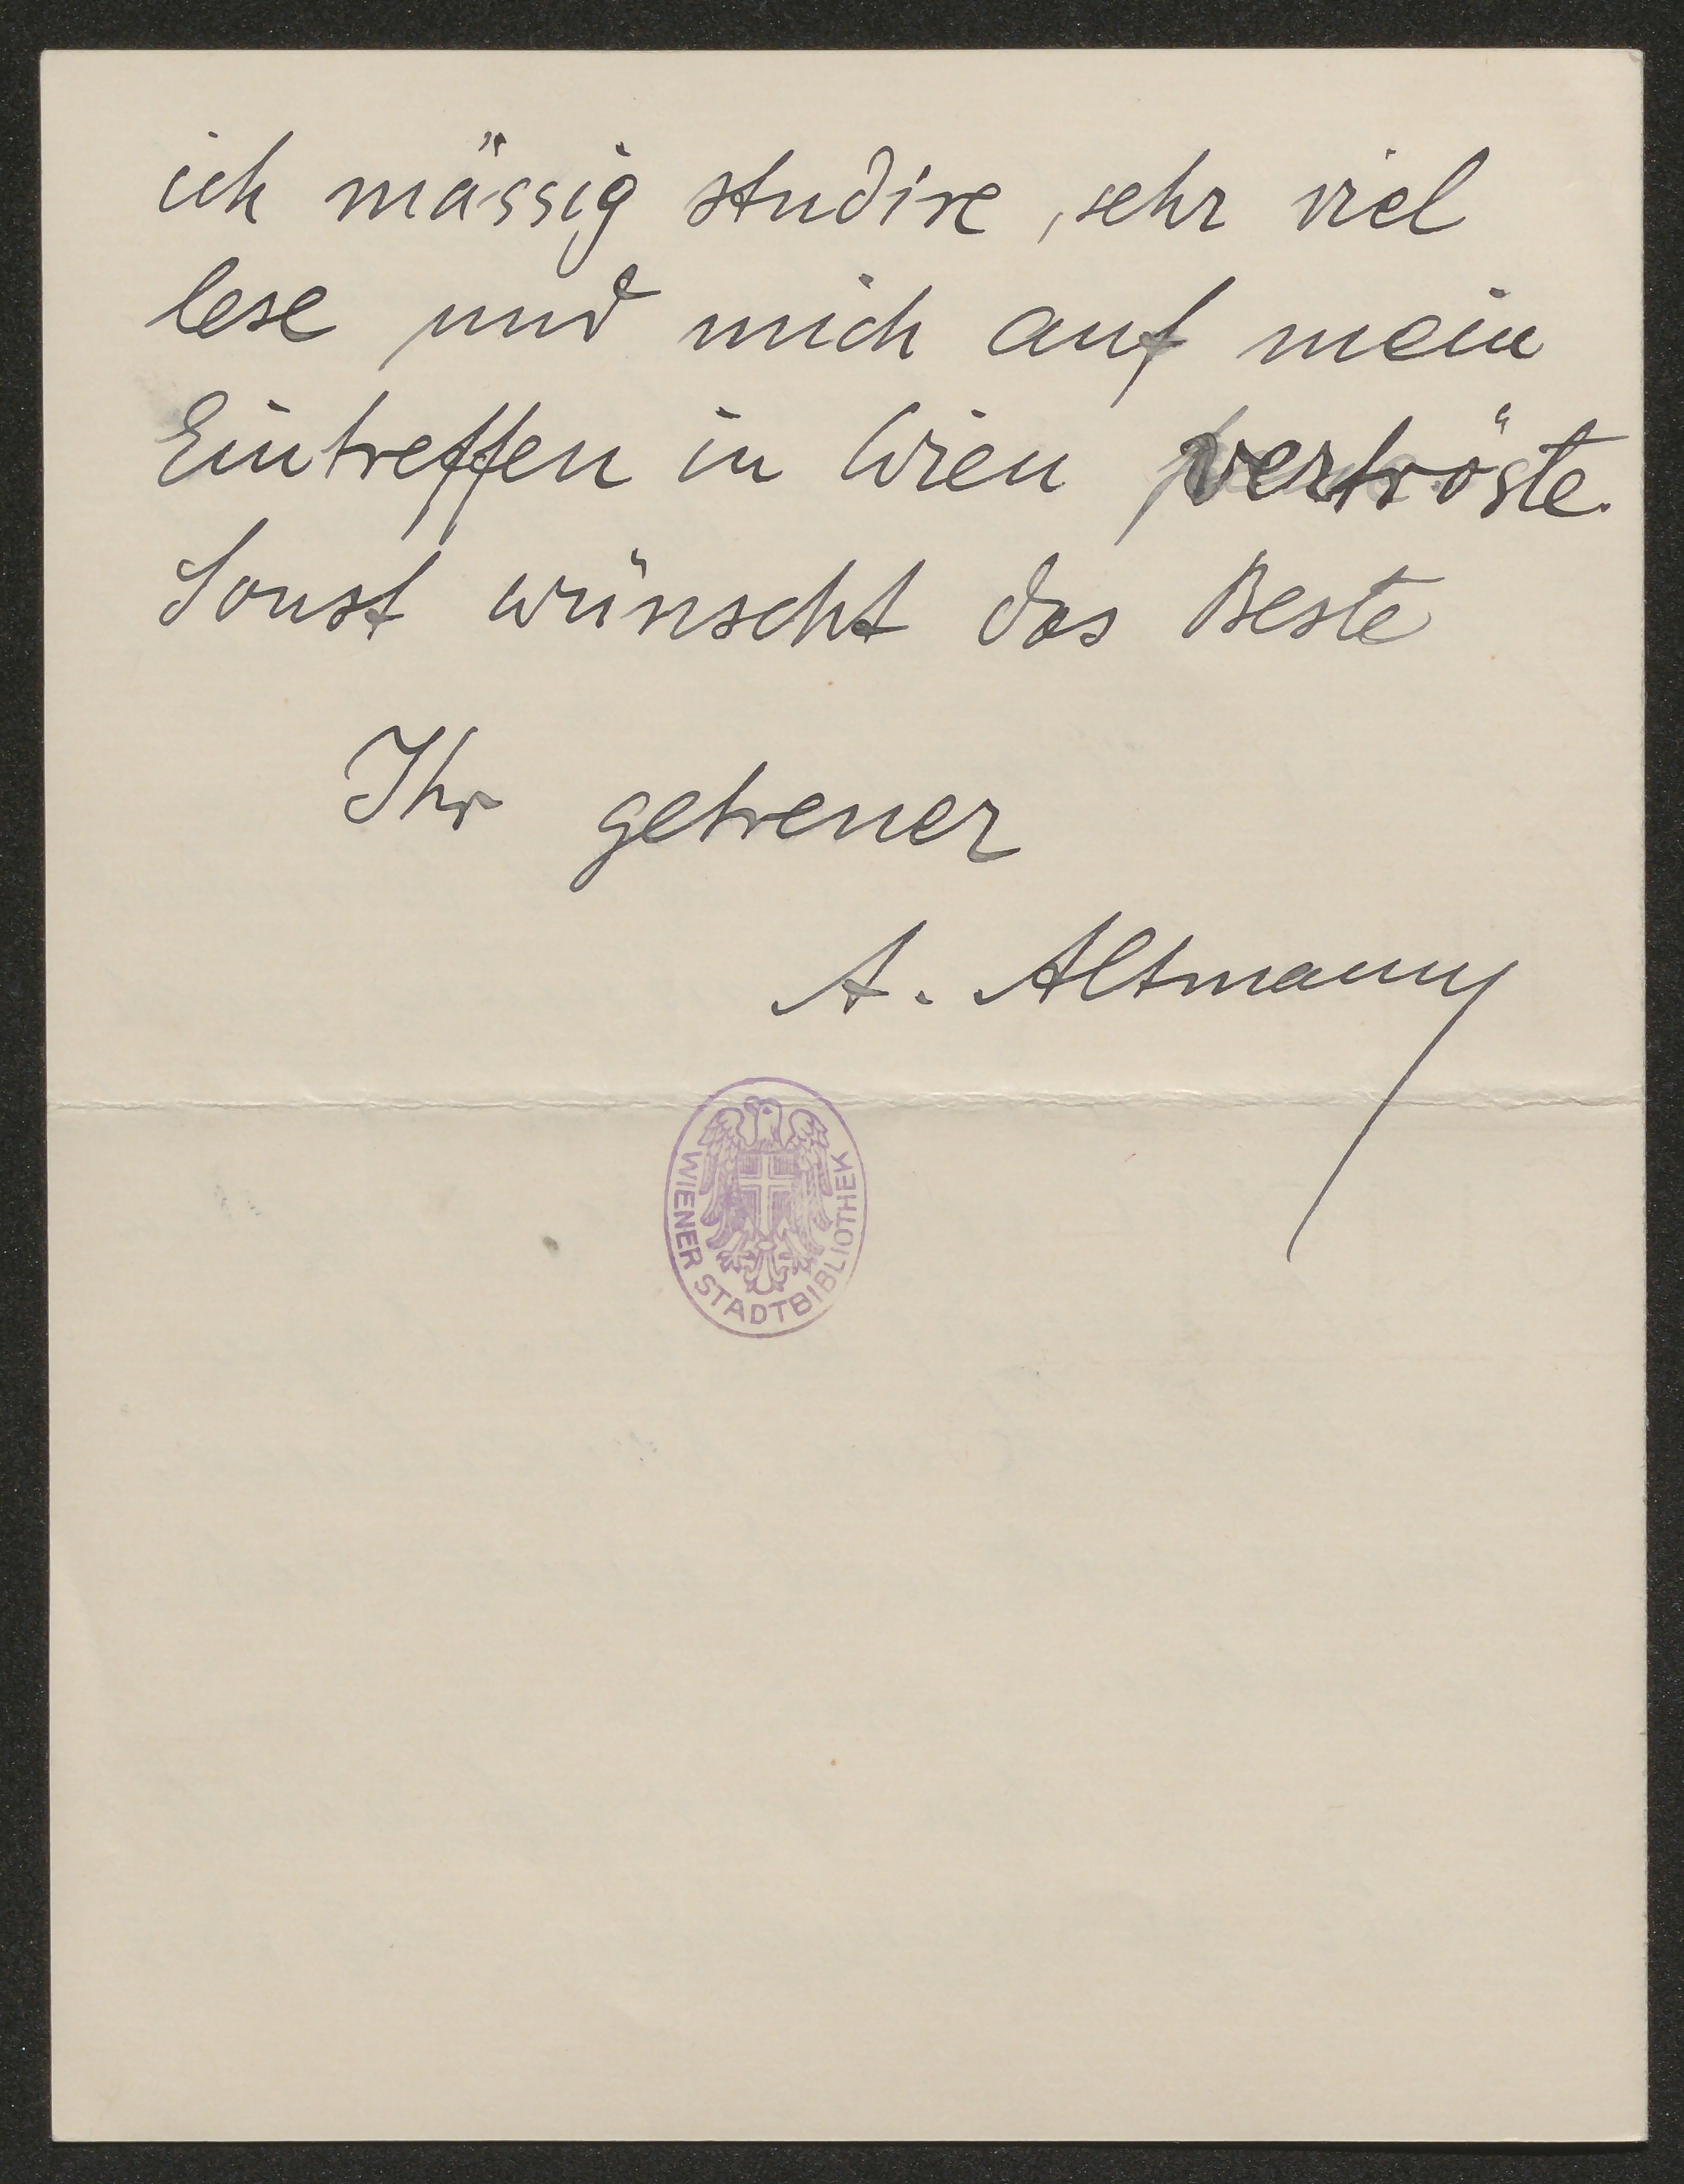 ich mässig studire, sehr viel
lese und mich auf mein
Eintreffen in Wien vertröste.
Sonst wünscht das Beste
Ihr getreuer
A. Altmann
WIENER STADTBIBLIOTHEK